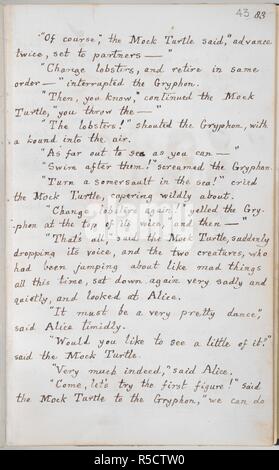 43 83
"Of course," the Mock Turtle said, "advance
twice, set to partners — "
"Change lobsters, and retire in same
order — " interrupted the Gryphon.
"Then, you know," continued the Mock
Turtle, you throw the — "
"The lobsters!" shouted the Gryphon, with
a bound into the air.
"As far out to sea as you can — "
"Swim after them!" screamed the Gryphon.
"Turn a somersault in the sea!" cried
the Mock Turtle, capering wildly about.
"Change lobsters again!" yelled the Gry-
-phon at the top of its voice, "and then — "
"That's all," said the Mock Turtle, suddenly
dropping its voice, and the two creatures, who
had been jumping about like mad things
all this time, sat down again very sadly and
quietly, and looked at Alice.
"It must be a very pretty dance,"
said Alice timidly.
"Would you like to see a little of it?"
said the Mock Turtle.
"Very much indeed," said Alice.
"Come, let's try the first figure!" said
the Mock Turtle to the Gryphon, "we can do
alamy
Image ID: R5CTW0
www.alamy.com